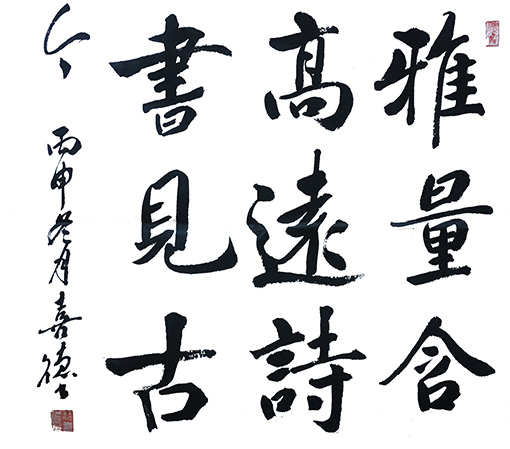 雅量含
高遠詩
書見古
今 丙申冬月喜德书